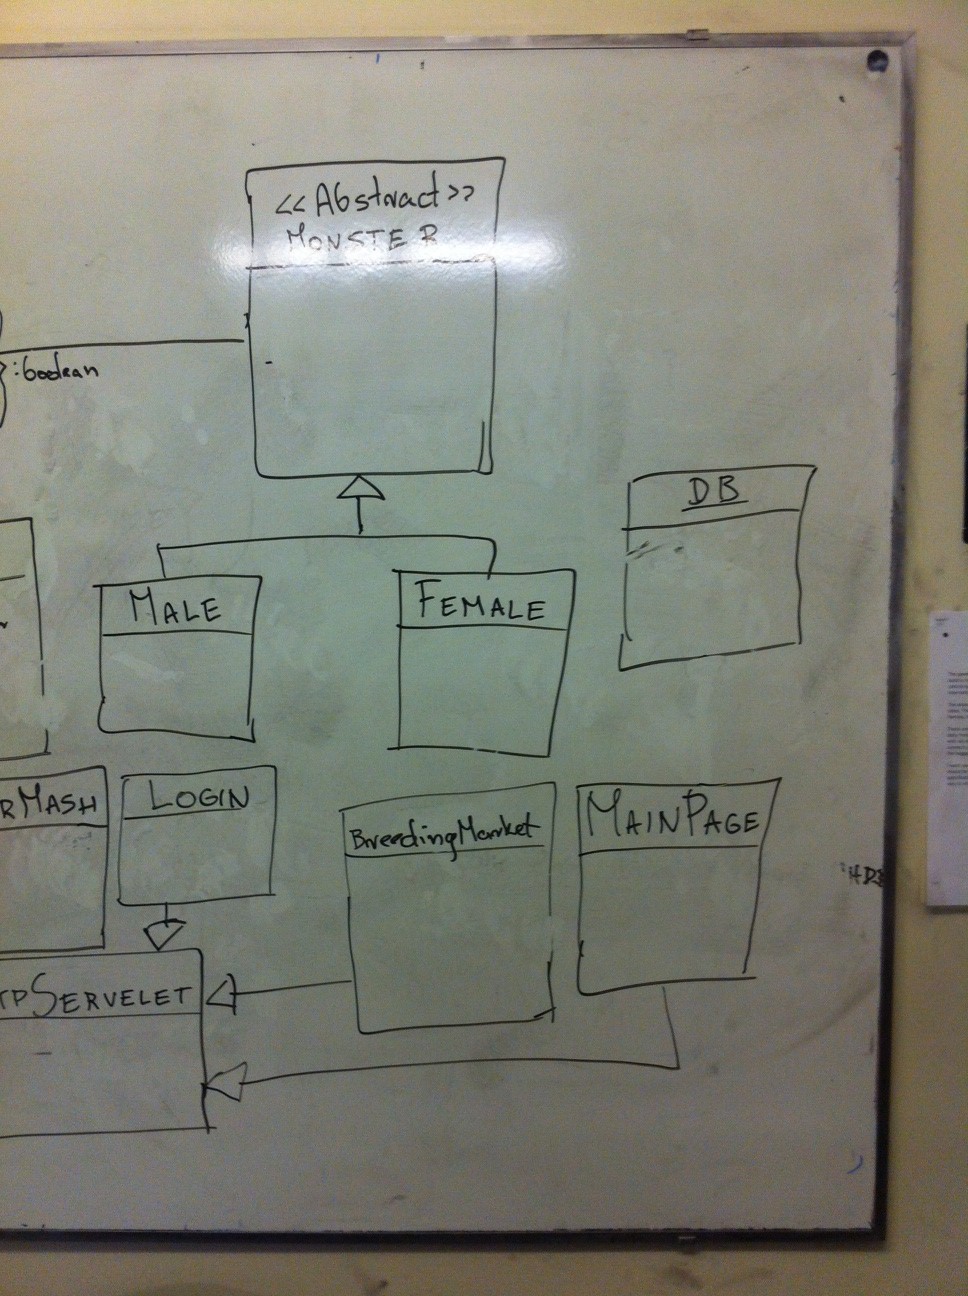 <<Abstract>>
MONSTER
:boolean
DB
MALE
FEMALE
RMASH
LOGIN
BreedingMarket
MAINPAGE
TPSERVELET